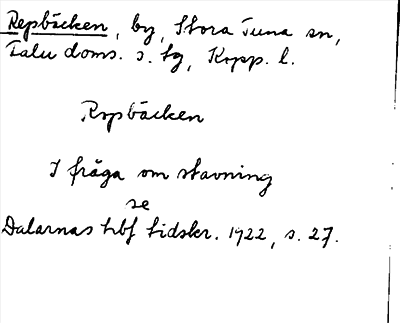 Repbäcken, by, Stora Tuna sn,
Falu doms. s. tg, Kopp. l.
Repbäcken
I fråga om stavning
se
Dalarnas hbf tidskr. 1922, s. 27.